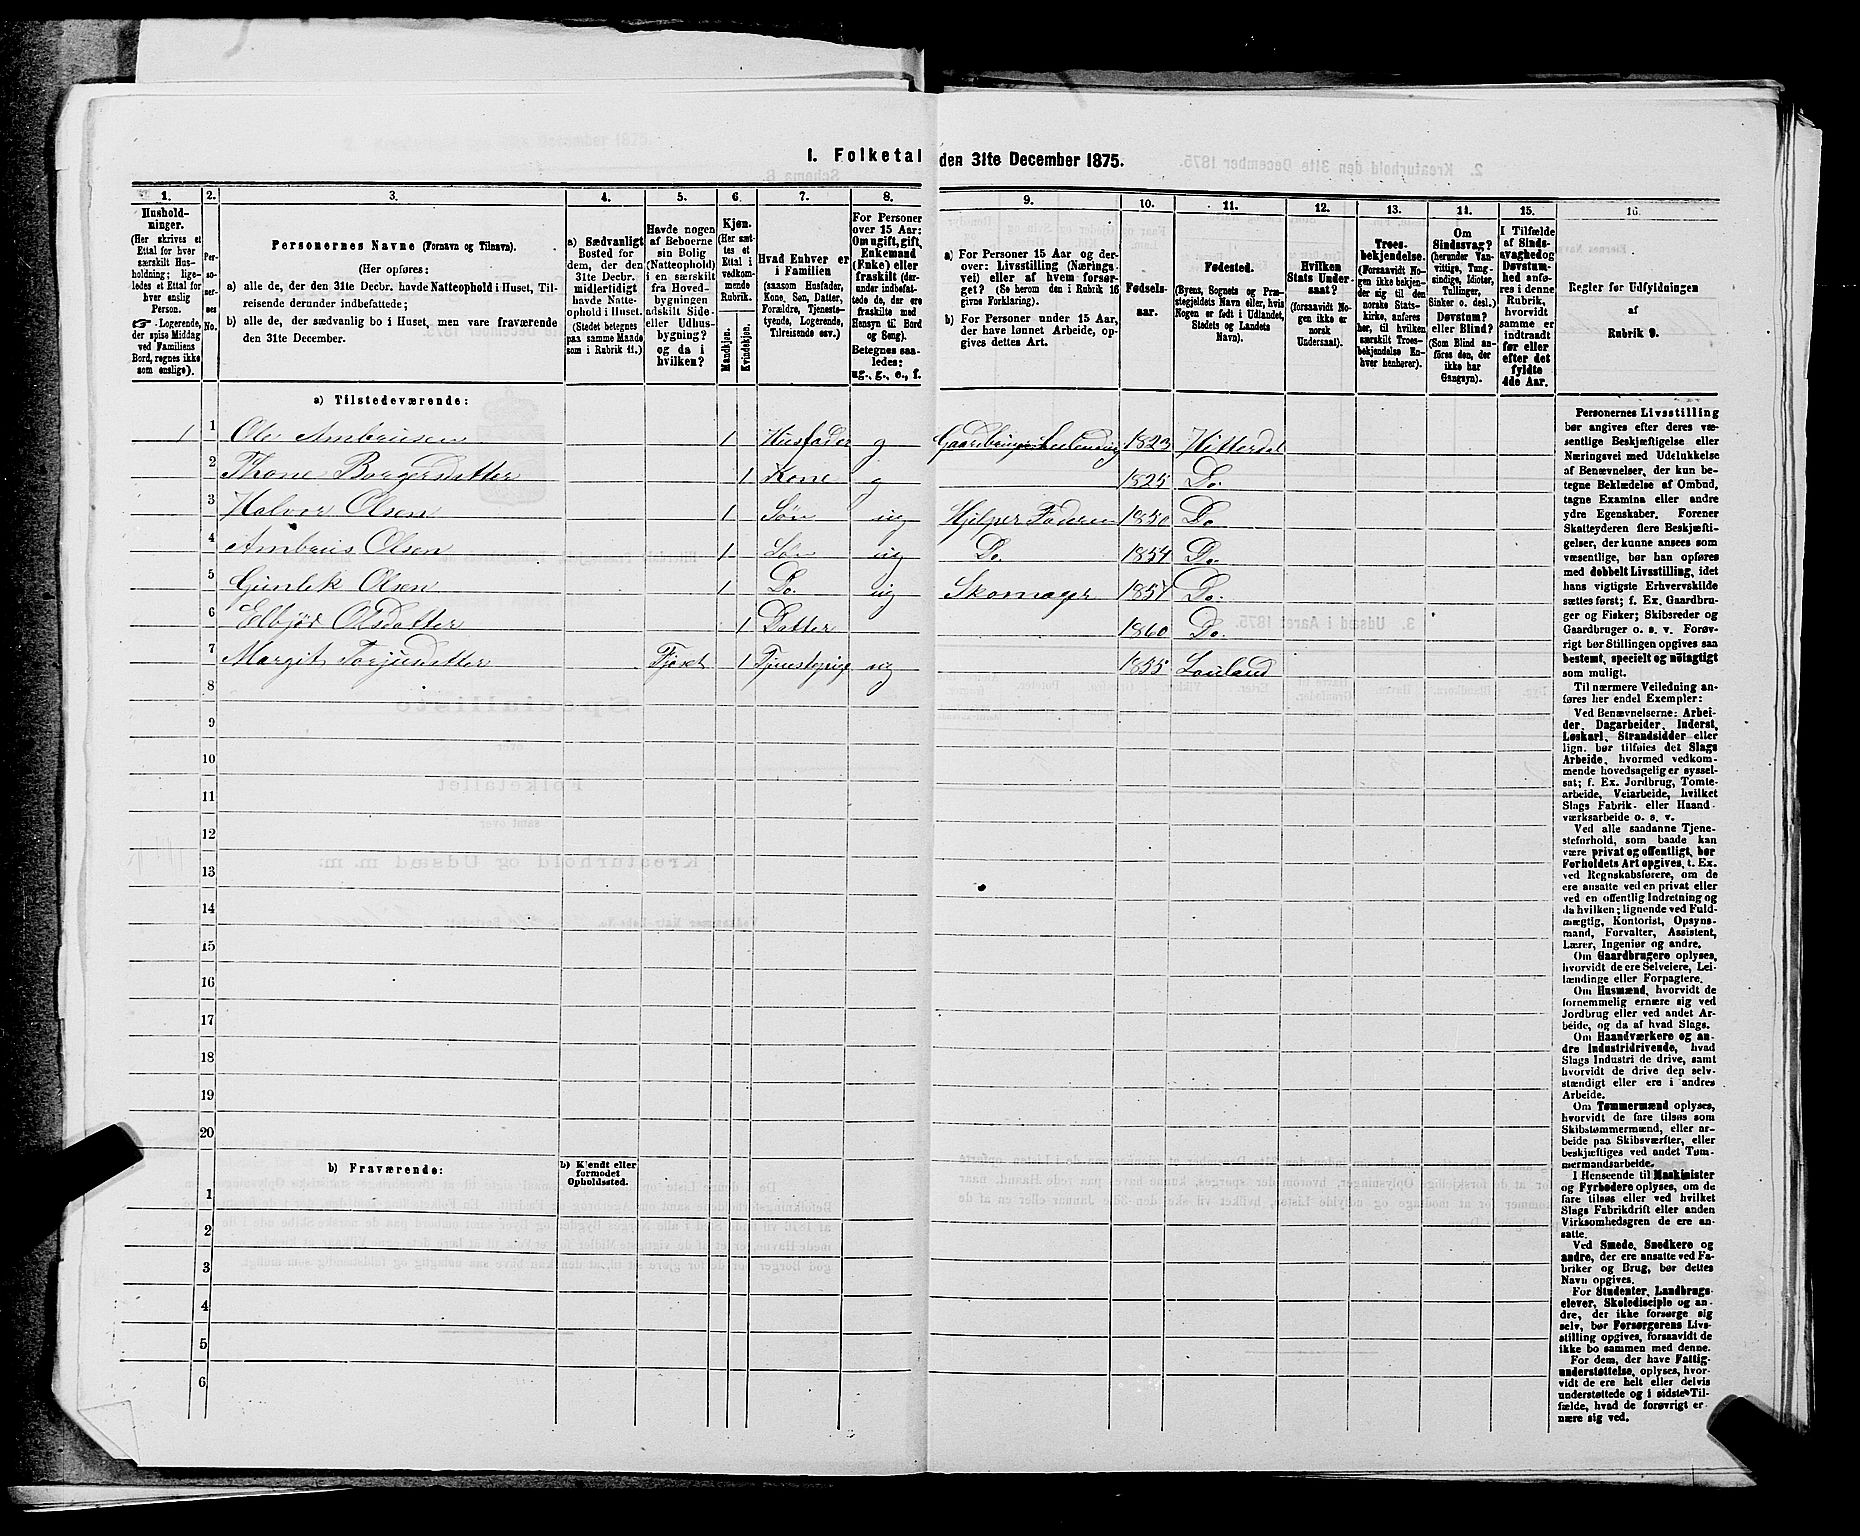 I. Folketal den 31te December 1875.
1.
Hushold-
ninger.
(Her skrives et
Ettal for hver
særskilt Hus-
holdning; lige-
ledes et Ettal for
hver enslig
Person.
☞ Logerende,
der spise Middag
ved Familiens
Bord, regnes ikke
som enslige).
2.
Per-
so-
ner-
nes
No.
3.
Personernes Navne (Fornavn og Tilnavn).
(Her opføres:
a) alle de, der den 31te Decbr. havde Natteophold i Huset, Til-
reisende derunder indbefattede;
b) alle de, der sædvanlig bo i Huset, men vare fraværende
den 31te December.
4.
a) Sædvanligt
Bosted for
dem, der den
31te Decbr.
midlertidigt
havde Natte-
ophold i Huset.
(Stedet betegnes
paa samme Maade
som i Rubrik 11.)
5.
Havde nogen
af Beboerne
sin Bolig
(Natteophold)
i en særskilt
fra Hoved-
bygningen
adskilt Side-
eller Udhus-
bygning?
og da i
hvilken?
6.
Kjøn.
(Her sæt-
tes et
Ettal i
vedkom-
mende
Rubrik.
Mandkjøn.
Kvindekjøn.
7.
Hvad Enhver er
i Familien
(saasom Husfader,
Kone, Søn, Datter,
Forældre, Tjeneste-
tyende, Logerende,
Tilreisende osv.)
8.
For Personer
over 15 Aar:
Om ugift, gift,
Enkemand
(Enke) eller
fraskilt (der-
under indbefat-
tede de, der ere
fraskilte med
Hensyn til Bord
og Seng).
Betegnes saa-
ledes:
ug., g., e., f.
9.
a) For Personer 15 Aar og der-
over: Livsstilling (Nærings-
vei) eller af hvem forsør-
get? (Se herom den i Rubrik 16
givne Forklaring).
b) For Personer under 15 Aar,
der have lønnet Arbeide, op-
gives dettes Art.
10.
Fødsels-
aar.
11.
Fødested.
(Byens, Sognets og Præ-
stegjeldets Navn eller, hvis
Nogen er født i Udlandet,
Stedets og Landets
Navn).
12.
Hvilken
Stats Under-
saat?
(forsaavidt No-
gen ikke er
norsk
Undersaat).
13.
Troes-
bekjendelse.
(Forsaavidt No-
gen ikke bekjen-
der sig til den
norske Stats-
kirke, anføres
her, til hvilken
særskilt Troes-
bekjendelse En-
hver henhører).
14.
Om
Sindssvag?
(herunder Van-
vittige, Tung-
sindige, Idioter,
Tullinger,
Sinker o. desl.)
Døvstum?
eller Blind?
(Som Blind an-
føres den, der
ikke har
Gangsyn).
15.
I Tilfælde
af Sinds-
svaghed og
Døvstum-
hed anfø-
res i denne
Rubrik,
hvorvidt
samme er
indtraadt
før eller
efter det
fyldte
4de Aar.
16.
Regler for Udfyldningen
af
Rubrik 9.
a) Tilstedeværende:
1 1 Ole Ambrusen 1 Husfader g Gaardbruger Leilending 1823 Hitterdal
2 Thone Borgersdatter 1 Kone g 1825 Do.
3 Halvor Olsen 1 Søn ug Hjelper Faderen 1850 Do
4 Ambrus Olsen 1 Søn ug Do 1854 Do
5 Gunlek Olsen 1 Do. ug Skomager 1857 Do.
6 Elbjør Olsdatter 1 Datter 1860 Do.
7 Margit Torjusdatter Fjøset 1 Tjenestepige ug 1855 Louland
8
9
10
11
12
13
14
15
16
17
18
19
20
b) Fraværende:
b) Kjendt eller
formodet
Opholdssted.
1
2
3
4
5
6
Personernes Livsstilling
bør angives efter deres væ-
sentlige Beskjæftigelse eller
Næringsvei med Udelukkelse
af Benævnelser, der kun be-
tegne Beklædelse af Ombud,
tagne Examina eller andre
ydre Egenskaber. Forener
Skatteyderen flere Beskjæfti-
gelser, der kunne ansees som
væsentlige, bør han opføres
med dobbelt Livsstilling, idet
hans vigtigste Erhvervskilde
sættes først; f. Ex. Gaardbru-
ger og Fisker; Skibsreder og
Gaardbruger o. s. v. Forøv-
rigt bør Stillingen opgives saa
bestemt, specielt og nøiagtigt
som muligt.
Til nærmere Veiledning an-
føres her endel Exempler:
Ved Benævnelserne: Arbei-
der, Dagarbeider, Inderst,
Løskarl, Strandsidder eller
lign. bør tilføies det Slags
Arbeide, hvormed vedkom-
mende hovedsagelig er syssel-
sat; f. Ex. Jordbrug, Tomte-
arbeide, Veiarbeide, hvilket
Slags Fabrik- eller Haand-
værksarbeide o. s. v.
Ved alle saadanne Tjene-
steforhold, som baade kan
være privat og offentligt, bør
Forholdets Art opgives, t. Ex.
ved Regnskabsførere, om de
ere ansatte ved en privat eller
ved en offentlig Indretning og
da hvilken; lignende ved Fuld-
mægtig, Kontorist, Opsyns-
mand, Forvalter, Assistent,
Lærer, Ingeniør og andre.
Om Gaardbrugere oplyses,
hvorvidt de ere Selveiere, Lei-
lændinge eller Forpagtere.
Om Husmænd, hvorvidt de
fornemmelig ernære sig ved
Jordbrug eller ved andet Ar-
beide, og da af hvad Slags.
Om Haandværkere og an-
dre Industridrivende, hvad
Slags Industri de drive, samt
hvorvidt de drive den selv-
stændigt eller ere i andres
Arbeide.
Om Tømmermænd oplyses,
hvorvidt de fare tilsøs som
Skibstømmermænd, eller ar-
beide paa Skibsværfter, eller
beskjæftiges ved andet Tøm-
mermandsarbeide.
I Henseende til Maskinister
og Fyrbødere oplyses, om de
fare tilsøs eller ved hvilket
Slags Fabrikdrift eller anden
Virksomhedsgren de ere an-
satte.
Ved Smede, Snedkere og
andre, der ere ansatte ved Fa-
briker og Brug, bør dettes
Navn opgives.
For Studenter, Landbrugs-
elever, Skoledisciple og an-
dre, der ikke forsørge sig
selv, bør Forsørgerens Livs-
stilling opgives, forsaavidt de
ikke bo sammen med denne.
For dem, der have Fattig-
understøttelse, oplyses, hvor-
vidt de ere helt eller delvis
understøttede og i sidste Til-
fælde, hvad de forøvrigt er-
nære sig ved.